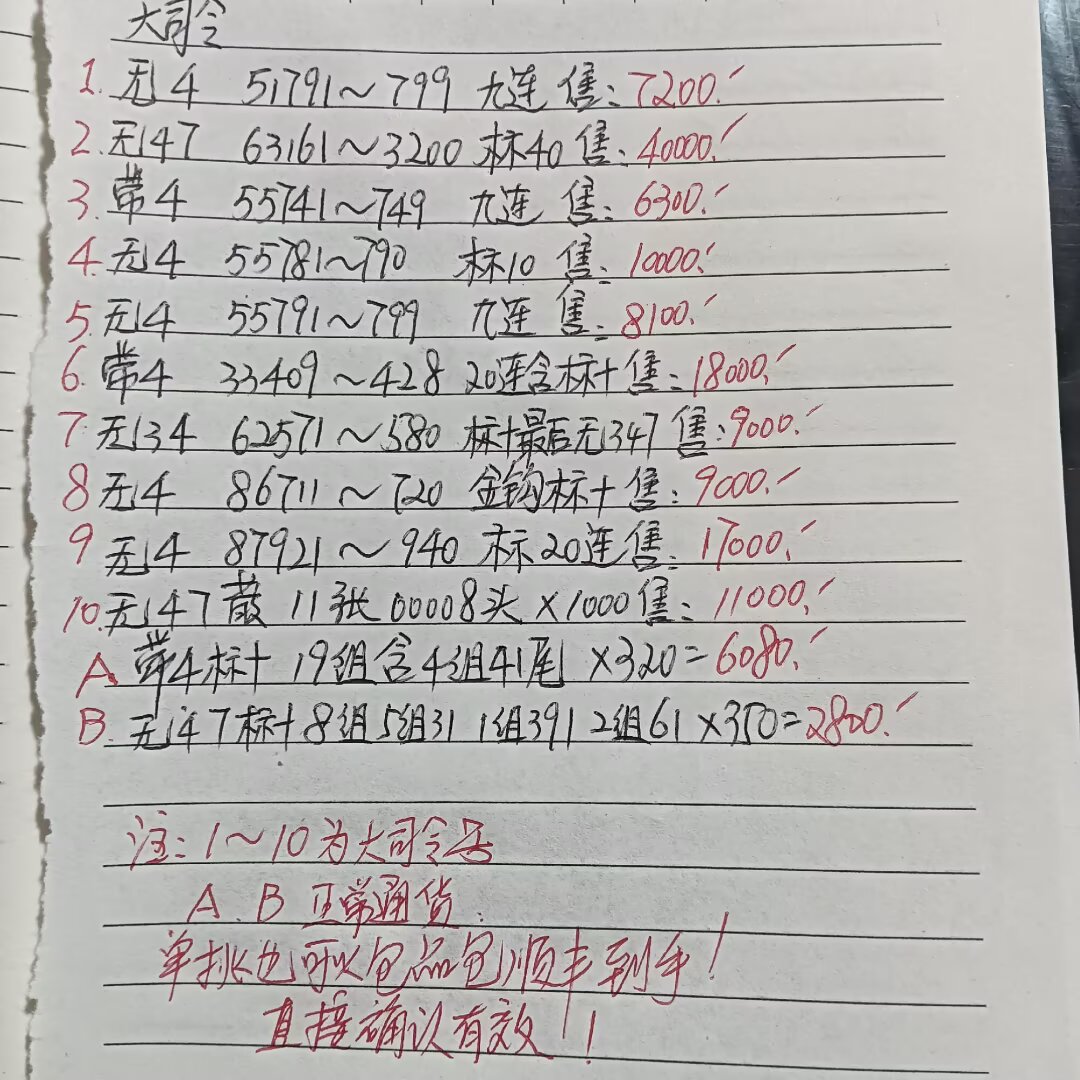 大司令
1. 无4 51791～799 九连 售：7200.
2. 无47 63161～3200 标40 售：40000.
3. 带4 55741～749 九连 售：6300.
4. 无4 55781～790 标10 售：10000.
5. 无4 55791～799 九连 售：8100.
6. 带4 33409～428 20连含标十售：18000.
7 无34 62571～580 标十最后无347售：9000.
8 无4 86711～720 金钩标十售：9000.
9 无4 87921～940 标20连售：17000.
10. 无47散 11张 00008头×1000售：11000.
A 带4标十 19组含4组41尾 ×320=6080.
B. 无47标十8组5组31 1组391 2组61×350=2800.
注：1～10为大司令号
A.B正常通货.
单挑也可以包品包顺丰到手！
直接确认有效！！